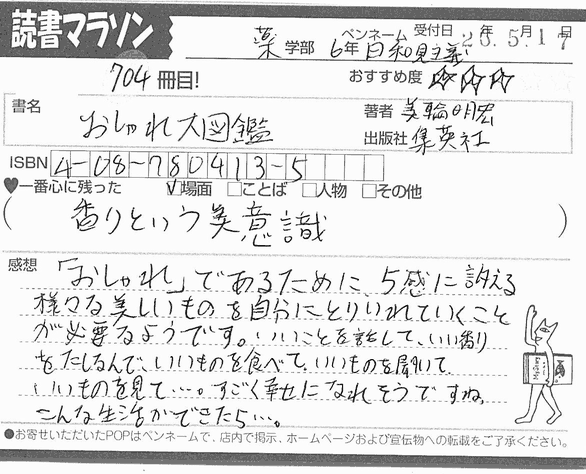 読書マラソン
ペンネーム 受付日 26年5月17日
薬学部 6年 日和見主義
704冊目! おすすめ度 ☆☆☆
書名 おしゃれ大図鑑
著者 美輪明宏
出版社 集英社
ISBN 4-08-780413-5
♥一番心に残った ☑場面 □ことば □人物 □その他
(香りという美意識)
感想 「おしゃれ」であるために、5感に訴える
様々な美しいものを自分にとりいれていくこと
が必要なようです。いいことを話して、いい香り
をたしなんで、いいものを食べて、いいものを聞いて、
いいものを見て…。すごく幸せになれそうですね。
こんな生活ができたら…。
●お寄せいただいたPOPはペンネームで、店内で掲示、ホームページおよび宣伝物への転載をご了承ください。